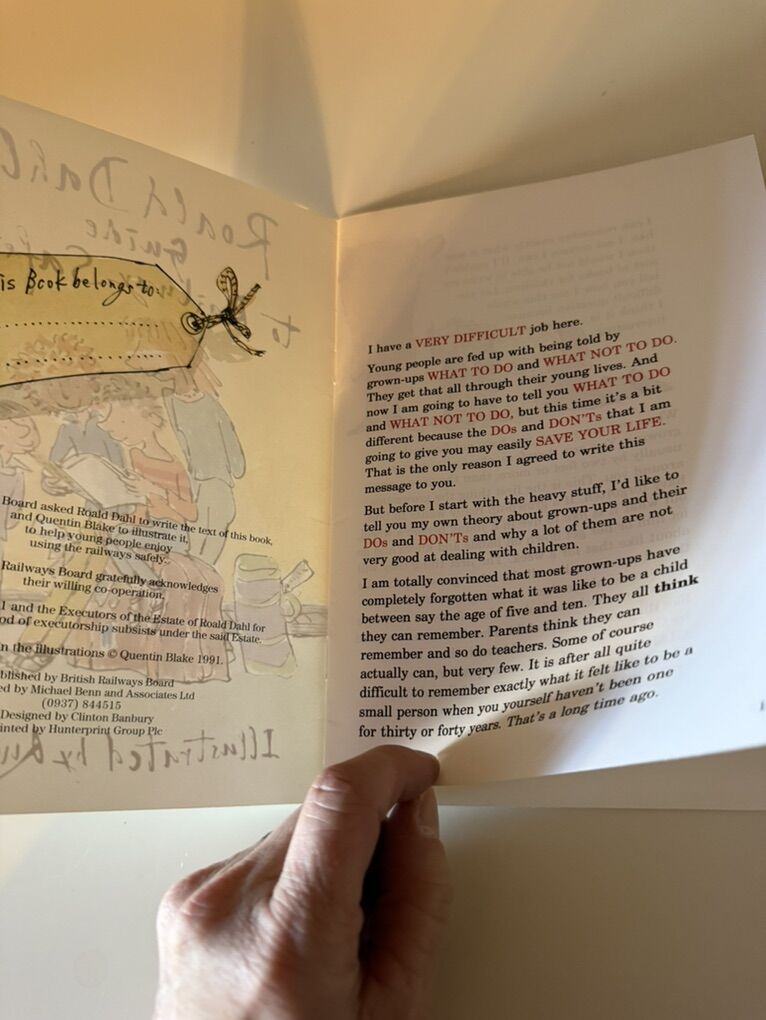 is Book belongs to:
Board asked Roald Dahl to write the text of this book,
and Quentin Blake to illustrate it,
to help young people enjoy
using the railways safely.
Railways Board gratefully acknowledges
their willing co-operation.
1 and the Executors of the Estate of Roald Dahl for
od of executorship subsists under the said Estate.
n the illustrations © Quentin Blake 1991.
blished by British Railways Board
ed by Michael Benn and Associates Ltd
(0937) 844515
Designed by Clinton Banbury
inted by Hunterprint Group Plc
Roald Dahl
Guide
to
Illustrated by
I have a VERY DIFFICULT job here.
Young people are fed up with being told by
grown-ups WHAT TO DO and WHAT NOT TO DO.
They get that all through their young lives. And
now I am going to have to tell you WHAT TO DO
and WHAT NOT TO DO, but this time it's a bit
different because the DOs and DON'Ts that I am
going to give you may easily SAVE YOUR LIFE.
That is the only reason I agreed to write this
message to you.
But before I start with the heavy stuff, I'd like to
tell you my own theory about grown-ups and their
DOs and DON'Ts and why a lot of them are not
very good at dealing with children.
I am totally convinced that most grown-ups have
completely forgotten what it was like to be a child
between say the age of five and ten. They all think
they can remember. Parents think they can
remember and so do teachers. Some of course
actually can, but very few. It is after all quite
difficult to remember exactly what it felt like to be a
small person when you yourself haven't been one
for thirty or forty years. That's a long time ago.